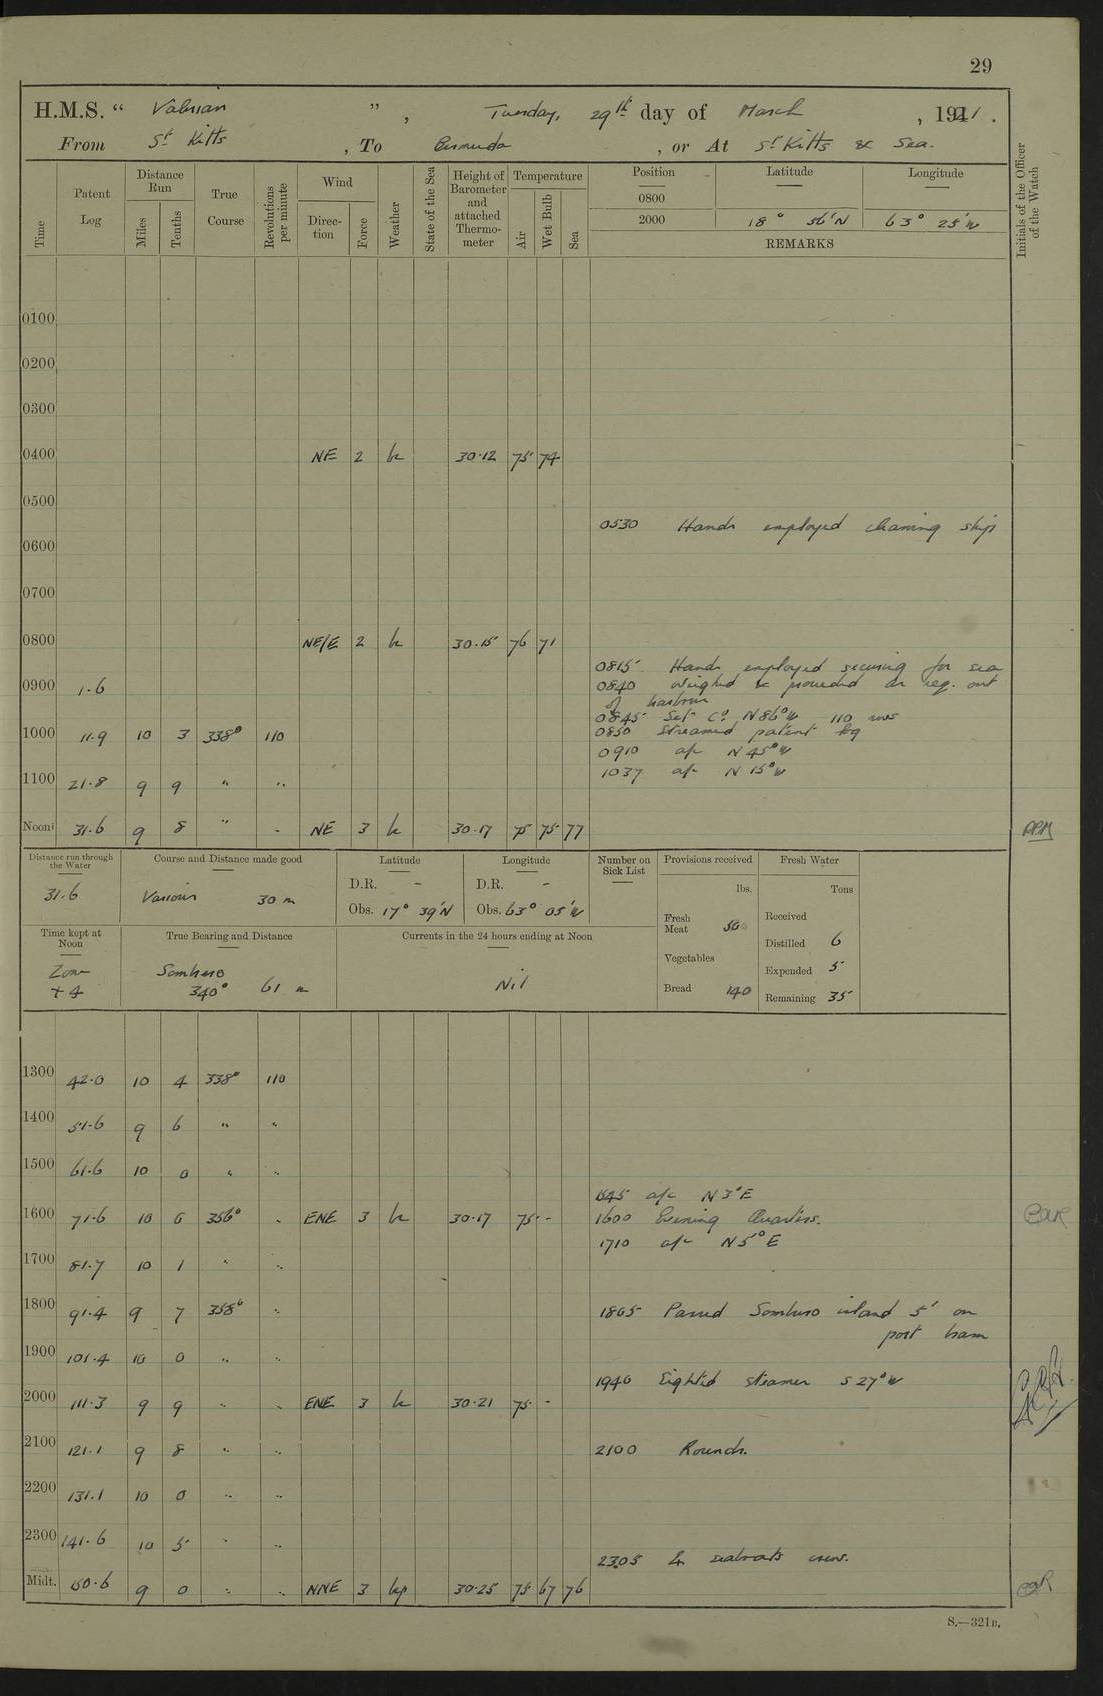 29
H.M.S. " Valerian ", Tuesday, 29th day of March, 1921.
From St Kitts, To Bermuda, or At St Kitts & Sea.
Time
Patent Log
Distance Run
Miles
Tenths
True Course
Revolutions per minute
Wind
Direction
Force
Weather
State of the Sea
Height of Barometer and attached Thermometer
Temperature
Air
Wet Bulb
Sea
Position Latitude Longitude
0800
2000 18° 56'N 63° 25'W
REMARKS
Initials of the Officer of the Watch
0100
0200
0300
0400 NE 2 bc 30·12 75 74
0500
0530 Hands employed cleaning ship
0600
0700
0800 NE/E 2 bc 30·15 76 71
0815 Hands employed securing for sea
0900 1·6
0840 Weighed & proceeded as req. out
of harbour
0845 Set Co N86°W 110 revs
1000 11·9 10 3 338° 110
0850 Streamed patent log
0910 a/c N45°W
1037 a/c N15°W
1100 21·8 9 9 " "
Noon 31·6 9 8 " " NE 3 bc 30·17 75 75 77
Distance run through the Water
31·6
Course and Distance made good
Various 30 m
Latitude
D.R. -
Obs. 17° 39'N
Longitude
D.R. -
Obs. 63° 05'W
Number on Sick List
Provisions received
lbs.
Fresh Meat 50
Vegetables
Bread 140
Fresh Water
Tons
Received
Distilled 6
Expended 5
Remaining 35
Time kept at Noon
Zone
+4
True Bearing and Distance
Sombrero
340° 61 m
Currents in the 24 hours ending at Noon
Nil
1300 42·0 10 4 338° 110
1400 51·6 9 6 " "
1500 61·6 10 0 " "
1545 a/c N3°E
1600 71·6 10 0 356° " ENE 3 bc 30·17 75 -
1600 Evening Quarters.
1710 a/c N5°E
1700 81·7 10 1 " "
1800 91·4 9 7 358° "
1805 Passed Sombrero island 5' on
port beam
1900 101·4 10 0 " "
1940 Sighted steamer S27°W
2000 111·3 9 9 " " ENE 3 bc 30·21 75 -
2100 121·1 9 8 " "
2100 Rounds.
2200 131·1 10 0 " "
2300 141·6 10 5 " "
2305 Ex seaboats crew.
Midt. 150·6 9 0 " " NNE 3 bcp 30·25 75 67 76
S.—321B.